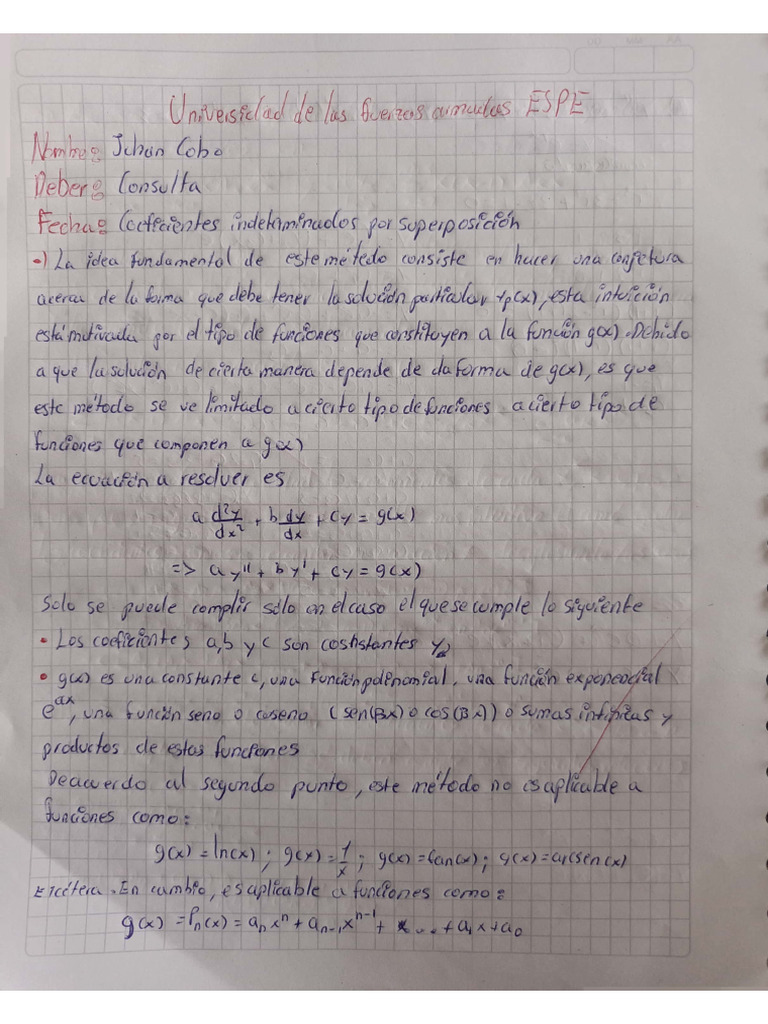 Universidad de las fuerzas armadas ESPE
Nombre: Johan Cobo
Deber: Consulta
Fecha: Coeficientes indeterminados por superposición
•) La idea fundamental de este método consiste en hacer una conjetura
acerca de la forma que debe tener la solución particular yp(x), esta intuición
está motivada por el tipo de funciones que constituyen a la función g(x). Debido
a que la solución de cierta manera depende de da forma de g(x), es que
este método se ve limitado a cierto tipo de funciones a cierto tipo de
funciones que componen a g(x)
La ecuación a resolver es
a d²y/dx² + b dy/dx + cy = g(x)
=> ay'' + by' + cy = g(x)
Solo se puede complir sólo en el caso el que se cumple lo siguiente
• Los coeficientes a, b y c son costistantes y
• g(x) es una constante c, una función polinomial, una función exponencial
e^ax, una función seno o coseno (sen(βx) o cos(βx)) o sumas infinitas y
productos de estas funciones
De acuerdo al segundo punto, este método no es aplicable a
funciones como:
g(x) = ln(x); g(x) = 1/x; g(x) = tan(x); g(x) = arcsen(x)
Etcétera. En cambio, es aplicable a funciones como:
g(x) = Pn(x) = aₙxⁿ + aₙ₋₁xⁿ⁻¹ + ... + a₁x + a₀